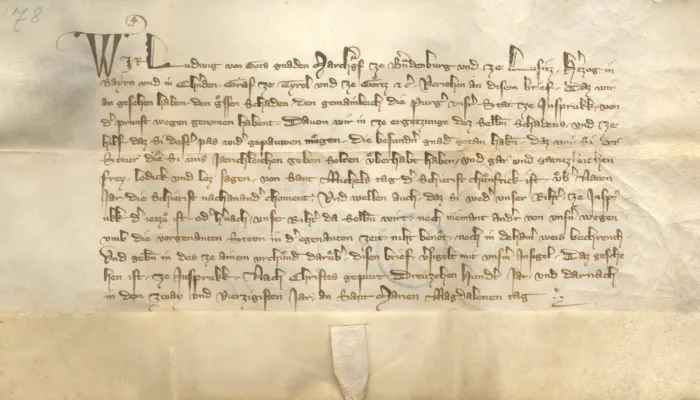 78
Wir Ludwig von Gots gnaden Marchgf ze Brandenburg und ze Lusitz, Hertzog in
Bayrn und in Chernden Graf ze Tyrol und ze Gortz &c Verichen an disem brief. Daz wir
an gesehen haben den grossen schaden den gemainchlich die Purger unser Stat ze Insprukk, von
der prunst wegen genomen habent. Davon wir in ze ergetzunge dez selben schadens, und ze
hilf daz si dest pas wider gepauwen mugen, die besunder gnad getan haben, daz wir si der
Steur die si uns Jaerichleichen geben solten uberhabt haben, und gar und gaentzleichen
frey, ledick und loz sagen, von Sant Michels tag der schierist chumftick ist, uber Jar
Jar die schierist nachanander choment. Und wellen auch, daz si weder unser Richter ze Inspr
ukk der ietzu ist, oder hernach, unser Richter da selben wirt, noch niemant ander von unsern wegen
umb die vorgenanten Steuren in der egenanten zeit niht benot, noch in dehain weis bechrench
Und geben in des ze ainem urchund daruber, disen brief, versigelt mit unserm Insigel. Daz gesche
hen ist, ze Insprukk, Nach Christes gepurt Dreutzehen Hundert Jar, und darnach
in dem zway und vierzigisten Jar, an Sant Marien Magdalenen tag